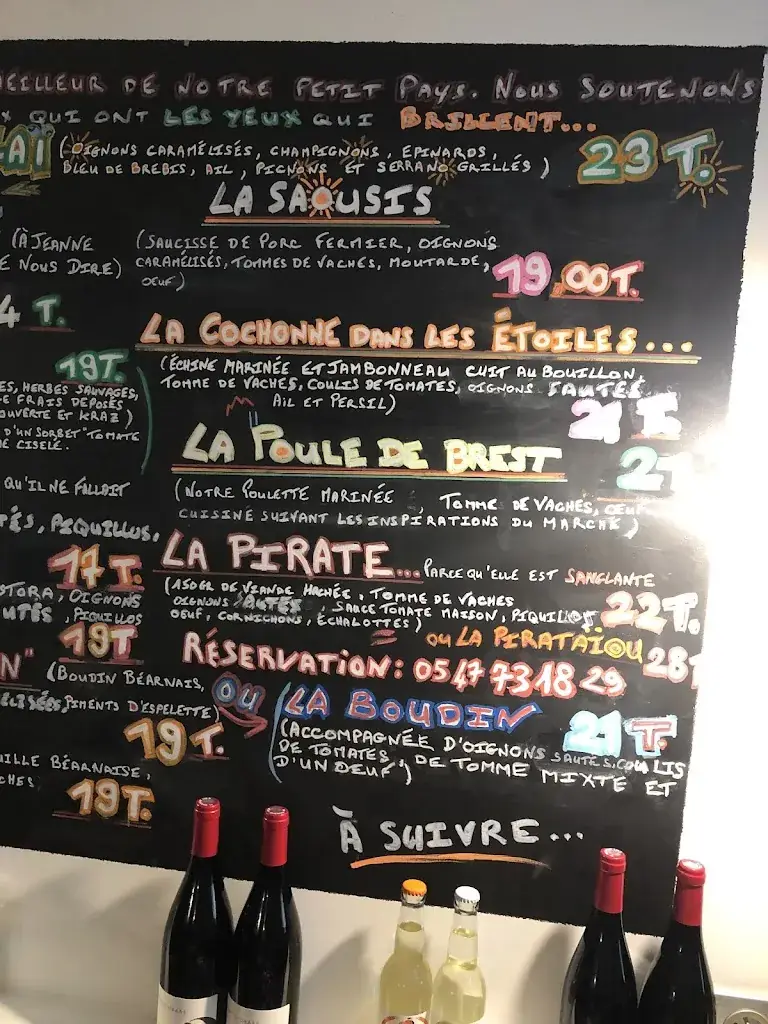 MEILLEUR DE NOTRE PETIT PAYS. NOUS SOUTENONS
X QUI ONT LES YEUX QUI BRILLENT...
LAÏ (OIGNONS CARAMÉLISÉS, CHAMPIGNONS, EPINARDS,
BLEU DE BREBIS, AIL, PIGNONS ET SERRANO GRILLÉS) 23 T.
LA SAOUSIS
(À JEANNE
E NOUS DIRE)
(SAUCISSE DE PORC FERMIER, OIGNONS
CARAMÉLISÉS, TOMMES DE VACHES, MOUTARDE,
OEUF) 19,00T.
4 T.
LA COCHONNE DANS LES ÉTOILES...
19T.
(ÉCHINE MARINÉE ET JAMBONNEAU CUIT AU BOUILLON,
TOMME DE VACHES, COULIS DE TOMATES, OIGNONS SAUTÉS
AIL ET PERSIL) 21 T.
ES, HERBES SAUVAGES,
E FRAIS DÉPOSÉS
OUVERTE ET KRAZ)
D'UN SORBET "TOMATE
E CISELÉ.
LA POULE DE BREST 21
QU'IL NE FALLAIT
(NOTRE POULETTE MARINÉE, TOMME DE VACHES, OEUF
CUISINÉ SUIVANT LES INSPIRATIONS DU MARCHÉ)
TÉS, PIQUILLOS,
17 T.
LA PIRATE... PARCE QU'ELLE EST SANGLANTE
(ASDER DE VIANDE HACHÉE, TOMME DE VACHES
OIGNONS SAUTÉS, SAUCE TOMATE MAISON, PIQUILLOS
OEUF, CORNICHONS, ÉCHALOTTES) 22T.
STORA, OIGNONS
UTÉS, PIQUILLOS
19T
OU LA PIRATAÏOU 28T
RÉSERVATION: 05 47 73 18 29
N" (BOUDIN BÉARNAIS,
PIMENTS D'ESPELETTE)
19 T.
OU LA BOUDIN 21 T.
(ACCOMPAGNÉE D'OIGNONS SAUTÉS, COULIS
DE TOMATES, DE TOMME MIXTE ET
D'UN OEUF)
UILLE BÉARNAISE,
CHES
19T.
À SUIVRE...